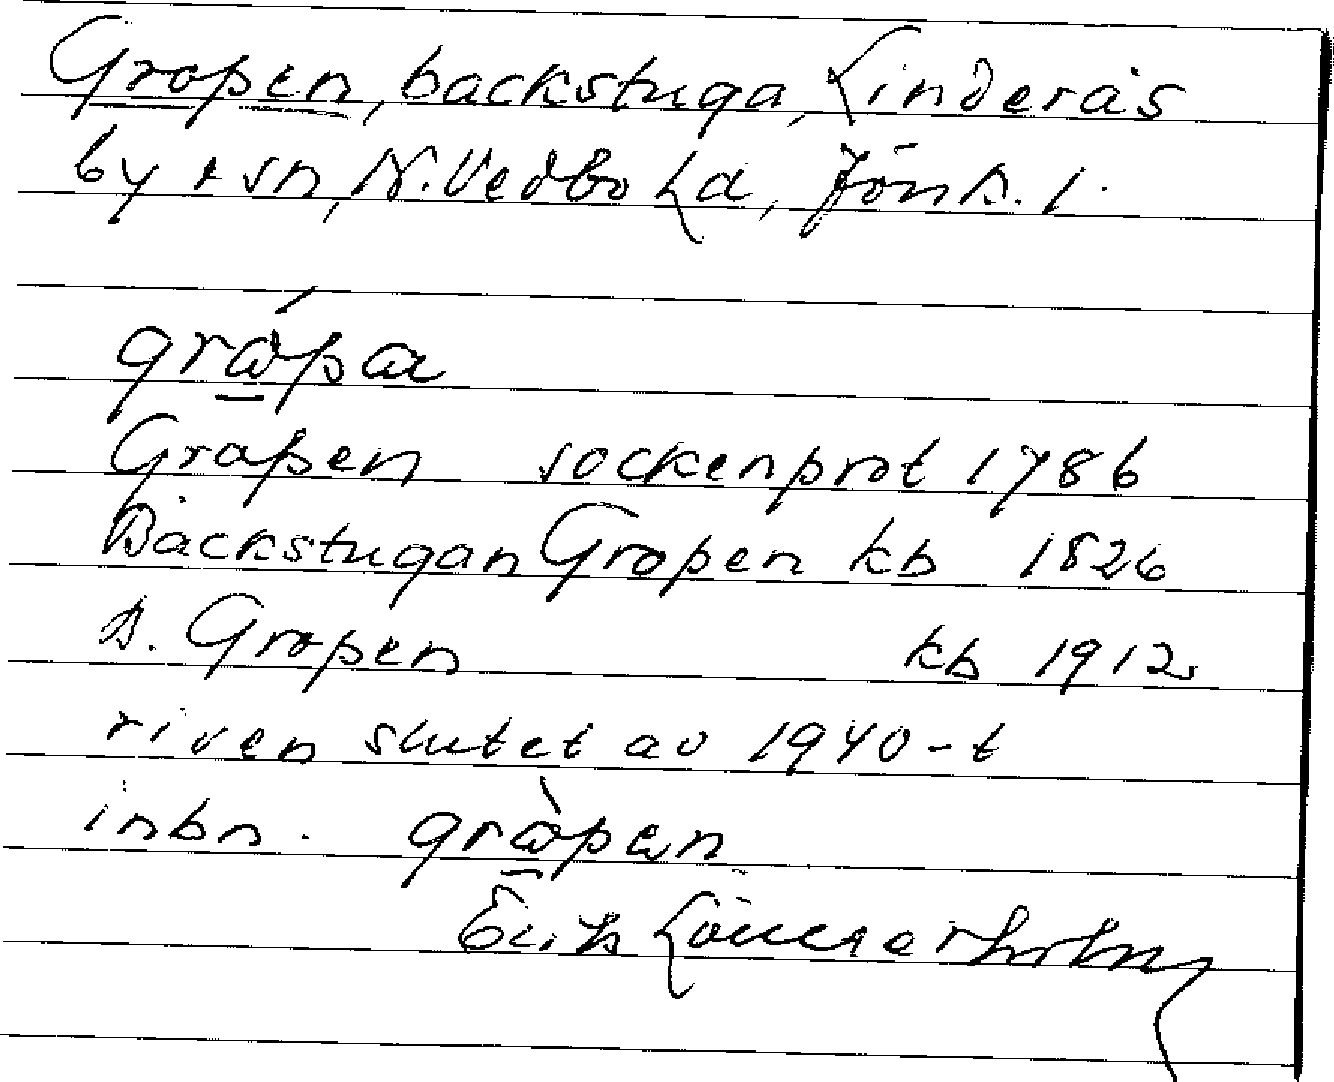 Gropen, backstuga, Linderås
by o sn, N. Vedbo hd, Jönk. l.
gråpa
Gropen sockenprot 1786
Backstugan Gropen kb 1826
B. Gropen kb 1912
riven slutet av 1940-t
inbn. gråpan
Erik Lönnerholm